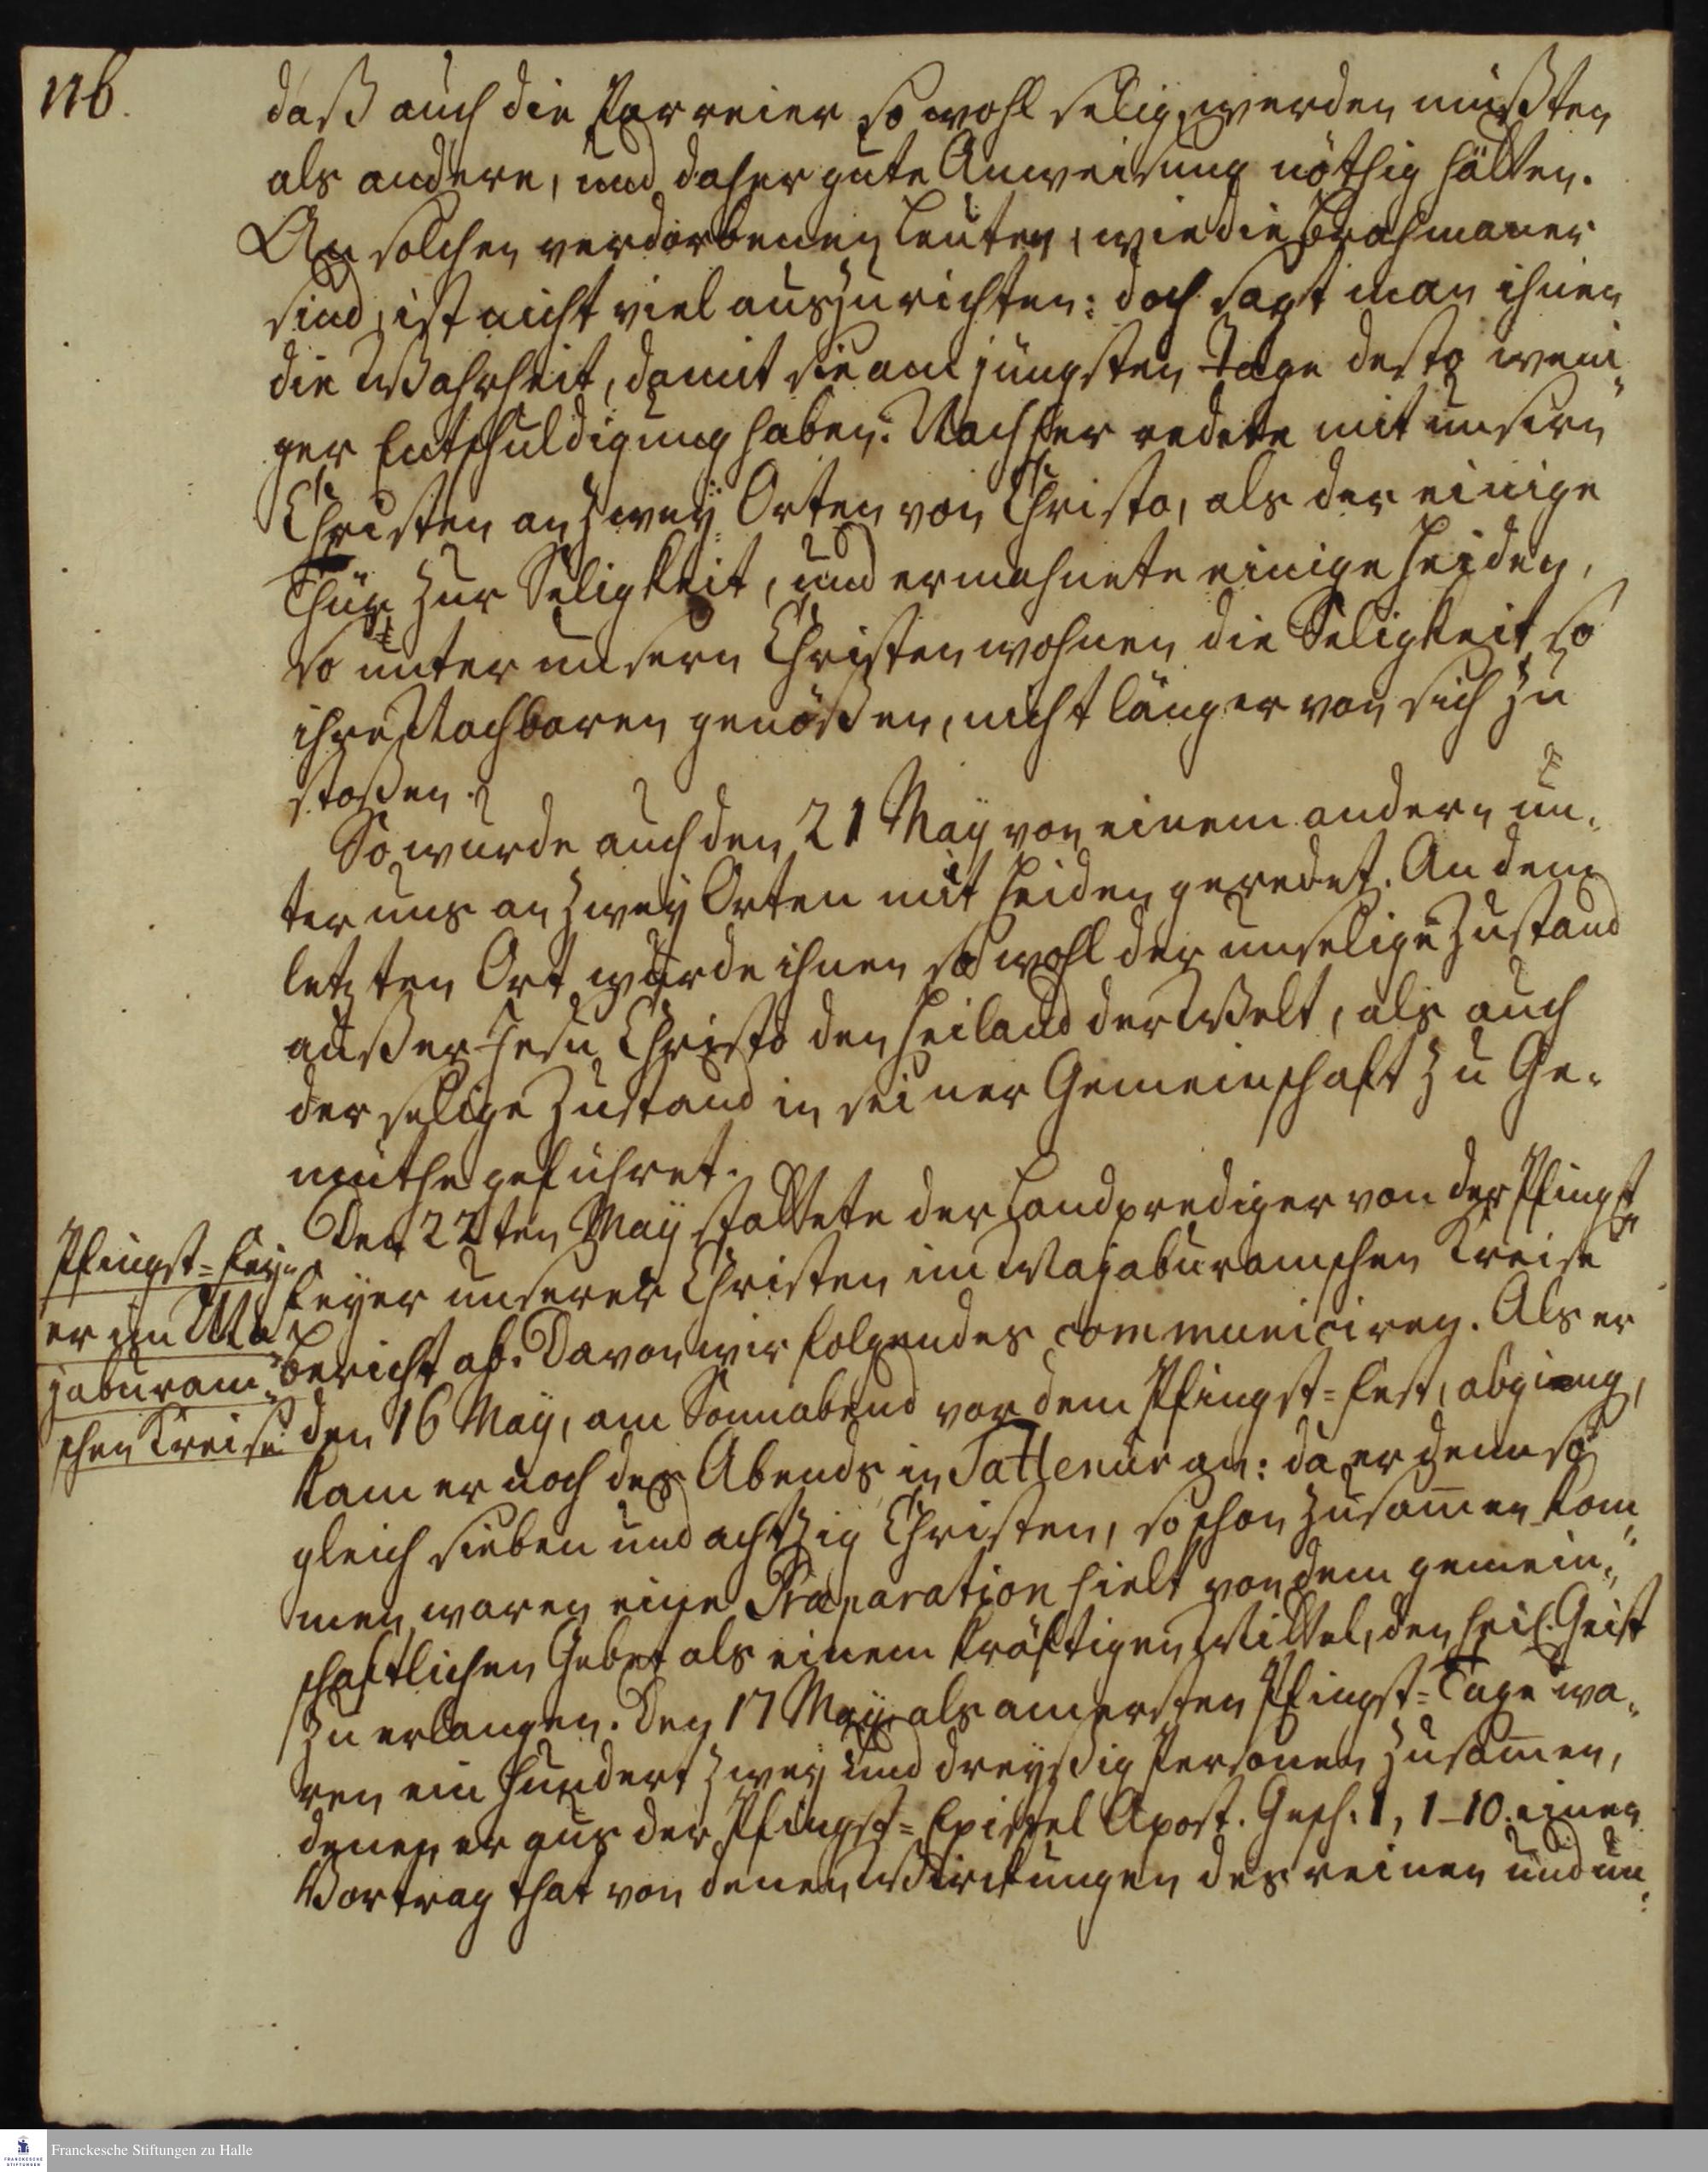 116.
daß auch die Parreier so wohl selig werden müßten
als andere, und daher gute Anweisung nöthig hätten.
An solchen verdorbenen Leuten, wie die Brahmaner
sind, ist nicht viel auszurichten: doch sagt man ihnen
die Wahrheit, damit sie am jüngsten Tage desto weni„
ger Entschuldigung haben. Nachher redete mit unsern
Christen an zweÿ Orten von Christo, als der einige
Thür zur Seligkeit, und ermahnete einige Heiden,
so unter unsern Christen wohnen die Seligkeit, so
ihre Nachbaren genößen, nicht länger von sich zu
stoßen.
So wurde auch den 21 Maÿ von einem andern un„
ter uns an zweÿ Orten mit Heiden geredet. An dem
letzten Ort wurde ihnen so wohl der unselige Zustand
außer Jesu Christo den Heiland der Welt, als auch
der selige Zustand in seiner Gemeinschaft zu Ge„
müthe geführet.
Den 22ten Maÿ stattete der Landprediger von der Pfingst„
Pfingst=Feÿ„
er im Ma„
jaburam„
schen Kreise
Feÿer unserer Christen im Majaburamschen Kreise
bericht ab. Davon wir folgendes communiciren. Als er
den 16 Maÿ, am Sonnabend vor dem Pfingst=Fest, abgieng,
kam er noch des Abends in Tattenur an: da er denn so
gleich sieben und achtzig Christen, so schon zusamen kom„
men waren eine Præparation hielt von dem gemein„
schaftlichen Gebet als einem kräftigen Mittel, den heil. Geist
zu erlangen. Den 17 Maÿ als am ersten Pfingst=Tage wa„
ren ein hundert zweÿ und dreÿßig Personen zusamen,
denen er aus der Pfingst=Epistel Apost. Gesch. 1, 1–10. einen
Vortrag that von denen Wirckungen des reinen und un„
Franckesche Stiftungen zu Halle
FRANCKESCHE
STIFTUNGEN